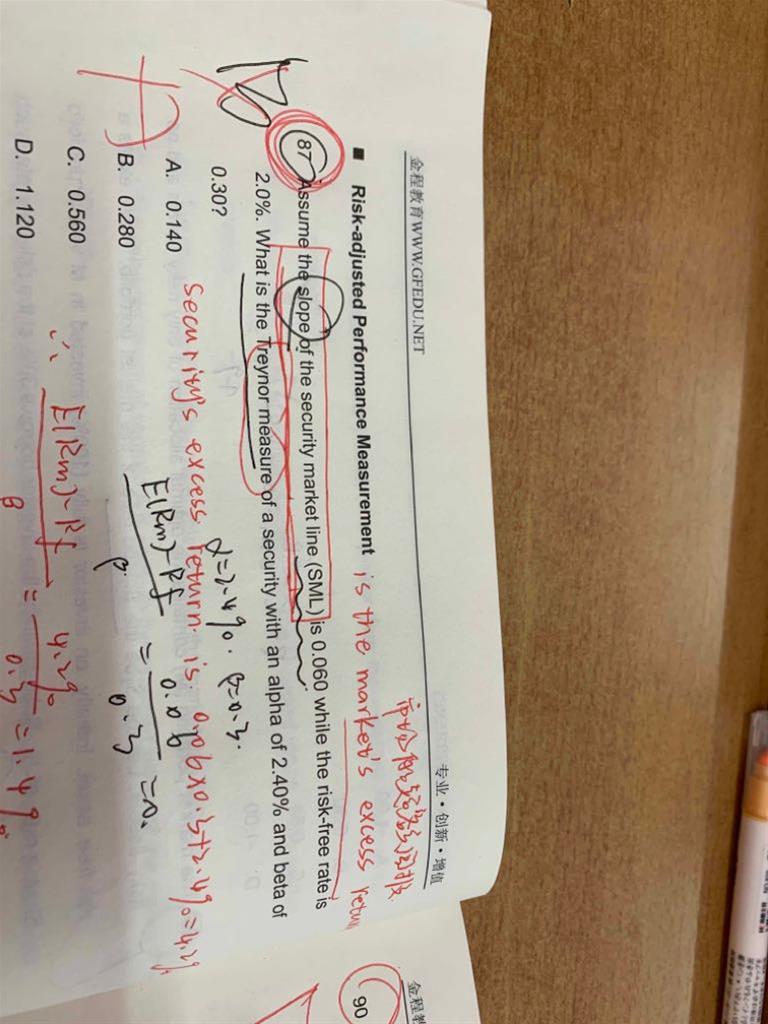 金程教育WWW.GFEDU.NET 专业・创新・增值
■ Risk-adjusted Performance Measurement is the market's excess return
87 Assume the slope of the security market line (SML) is 0.060 while the risk-free rate is
2.0%. What is the Treynor measure of a security with an alpha of 2.40% and beta of
0.30?
α=2.4% β=0.3.
A. 0.140
security's excess return is 0.06×0.3+2.4%=4.2%
B. 0.280
E(Rm)-Rf / β = 0.06 / 0.3 = 0.
C. 0.560
∴ E(Rm)-Rf / β = 4.2% / 0.3 = 1.4%
D. 1.120
金程教
90